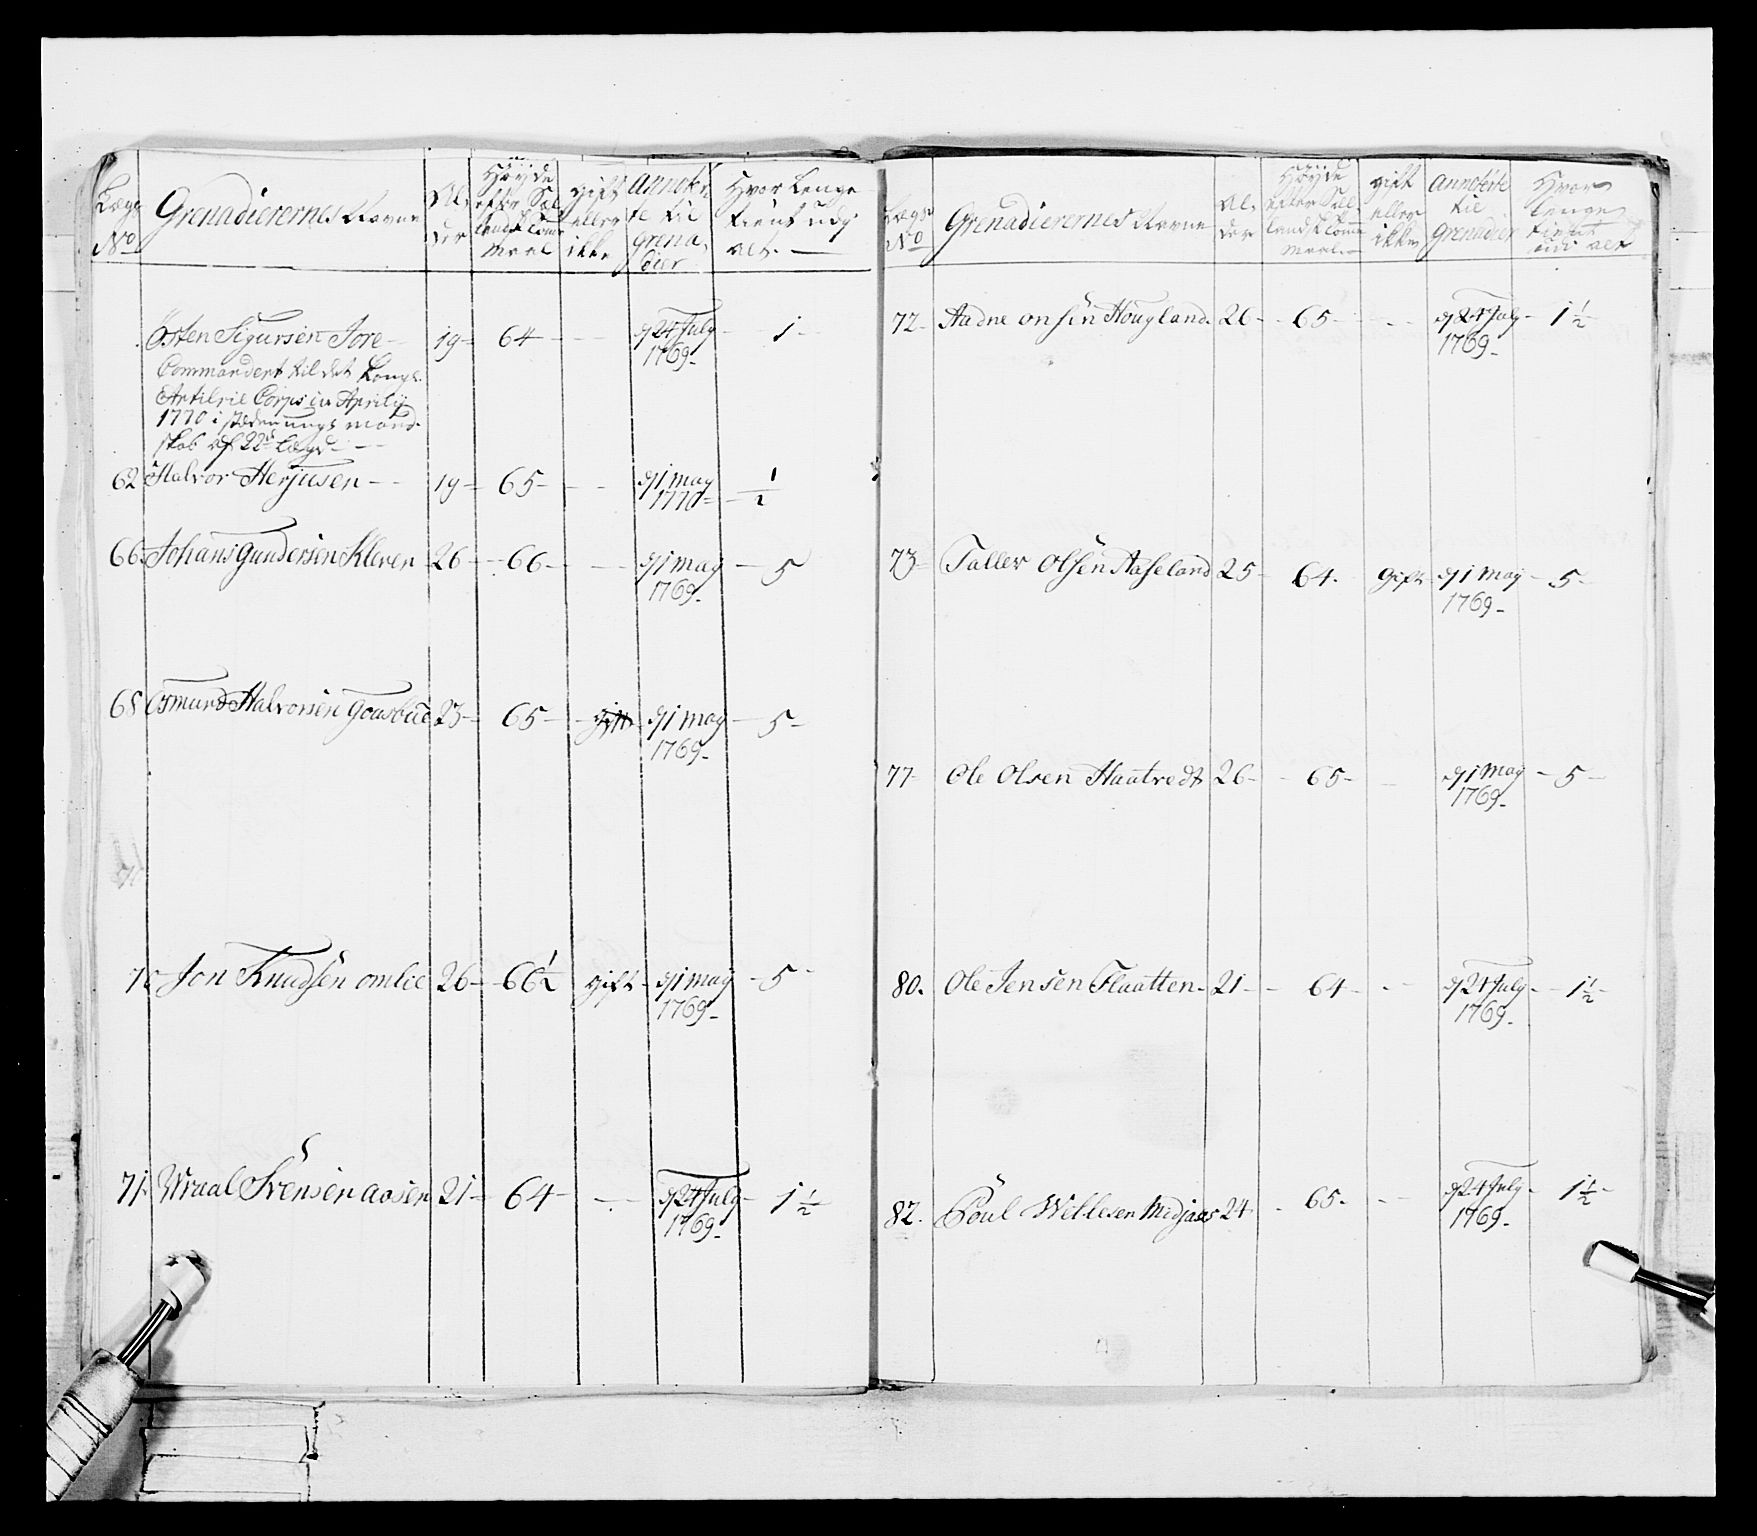 Lægs No
Grenadierernes Navne
Al, der
Høyde efter Sællandsk Tome Maal
gift eller ikke
annoterte til grenadier
Hvor lenge tient udj alt.
Østen Sigursen Jore - 19 - 64 - - - d 24 July 1769 - 1 -
Commandert til det Kongl.
Artilrie Corps in Aprily
1770 i stæden ungt mand-
skab af 22d Lægd -
62 Halvor Herjusen - - 19 - 65 - - - d 1 May 1770 - 1/2
66 Johans Gundersen Kleven 26 - 66 - - d 1 May 1769 - 5
68 Osmund Halvorsen Goasbue 23 - 65 - gift d 1 May 1769 - 5 -
70 Jon Knudsen omlie 26 - 66 1/2 gift - d 1 May 1769 - 5 -
71. Wraal Svensen aasen 21 - 64 - - d 24 July 1769 - 1 1/2
Lægs No
Grenadierernes Navne
Al, der
Høyde efter Sællandsk Tome Maal
gift eller ikke
annoterte til Grenadier
Hvor lenge tient udi alt
72 - Aadne onsen Hougland 26 - 65 - - - d 24 July 1769 - 1 1/2
73 - Taller Olsen Aaseland 25 - 64. Gift d 1 May 1769 - 5 -
77 - Ole Olsen Haatvedt 26 - 65 - - d 1 May 1769 - 5 -
80. Ole Jensen Flaatten - 21 - 64 - - - d 24 July 1769 - 1 1/2 -
82. Poul Willesen Midjaas 24 - 65 - - - d 24 July 1769 - 1 1/2 -